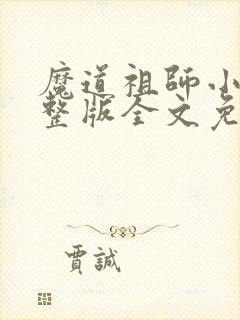 魔道祖師小
整版全文免
賈誠